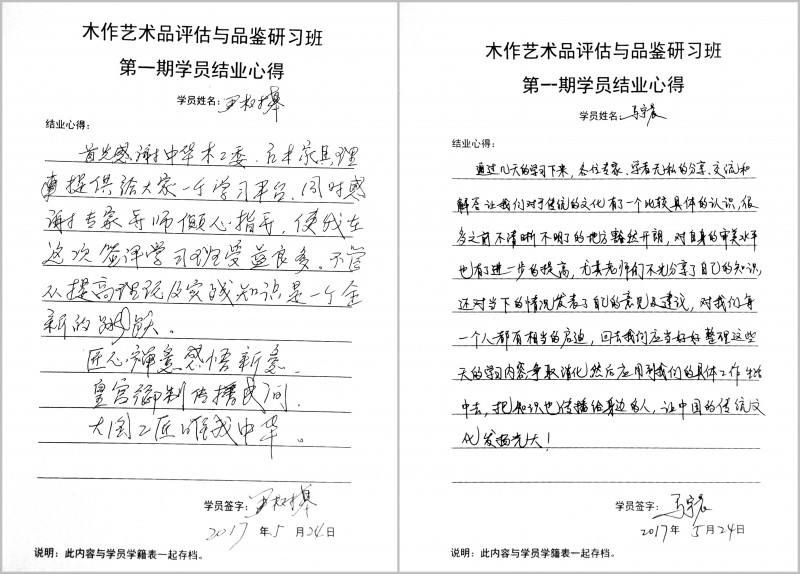 木作艺术品评估与品鉴研习班
第一期学员结业心得
学员姓名:
结业心得:
首先感谢中华木工委、古木家具理
事提供给大家一个学习平台,同时感
谢专家导师倾心指导,使我在
这次鉴评学习班受益良多。不管
从提高理论及实践知识是一个全
新的跨跃。
匠心禅意感悟新意.
皇宫御制传播民间.
大国工匠唯我中华。
学员签字:
2017 年 5 月 24 日
说明:此内容与学员学籍表一起存档。
木作艺术品评估与品鉴研习班
第一期学员结业心得
学员姓名: 马宇晨
结业心得:
通过几天的学习下来,各位专家、学者无私的分享、交流和
解答让我们对于传统的文化有了一个比较具体的认识,很
多之前不清晰不明了的地方豁然开朗,对自身的审美水平
也有了进一步的提高,尤其老师们不光分享了自己的知识,
还对当下的情况发表了自己的意见及建议,对我们每
一个人都有相当的启迪,回去我们应当好好整理这些
天的学习内容,争取消化然后应用到我们的具体工作生活
中去,把知识也传播给身边的人,让中国的传统文
化发扬光大!
学员签字: 马宇晨
2017年 5月24日
说明:此内容与学员学籍表一起存档。